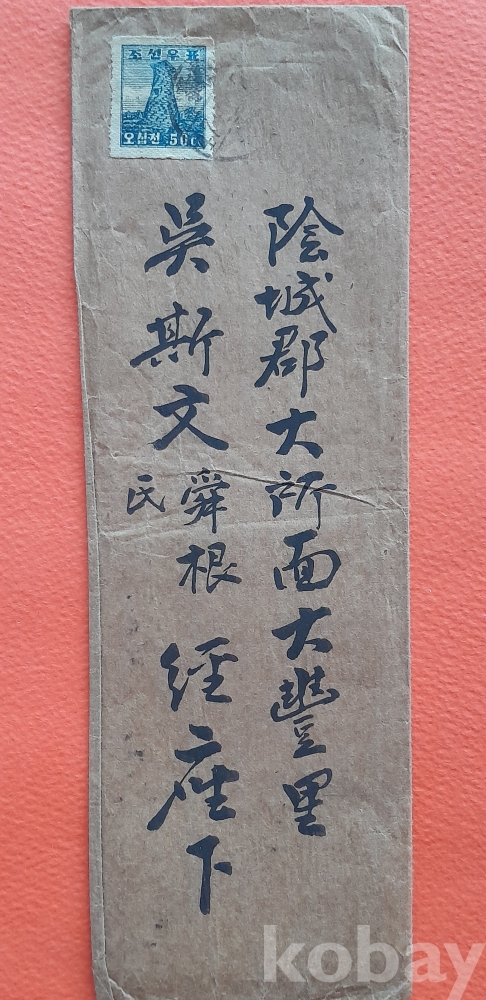 조선우표
오십전 50
陰城郡大所面大豐里
吳斯文舜根經座下
民
kobay